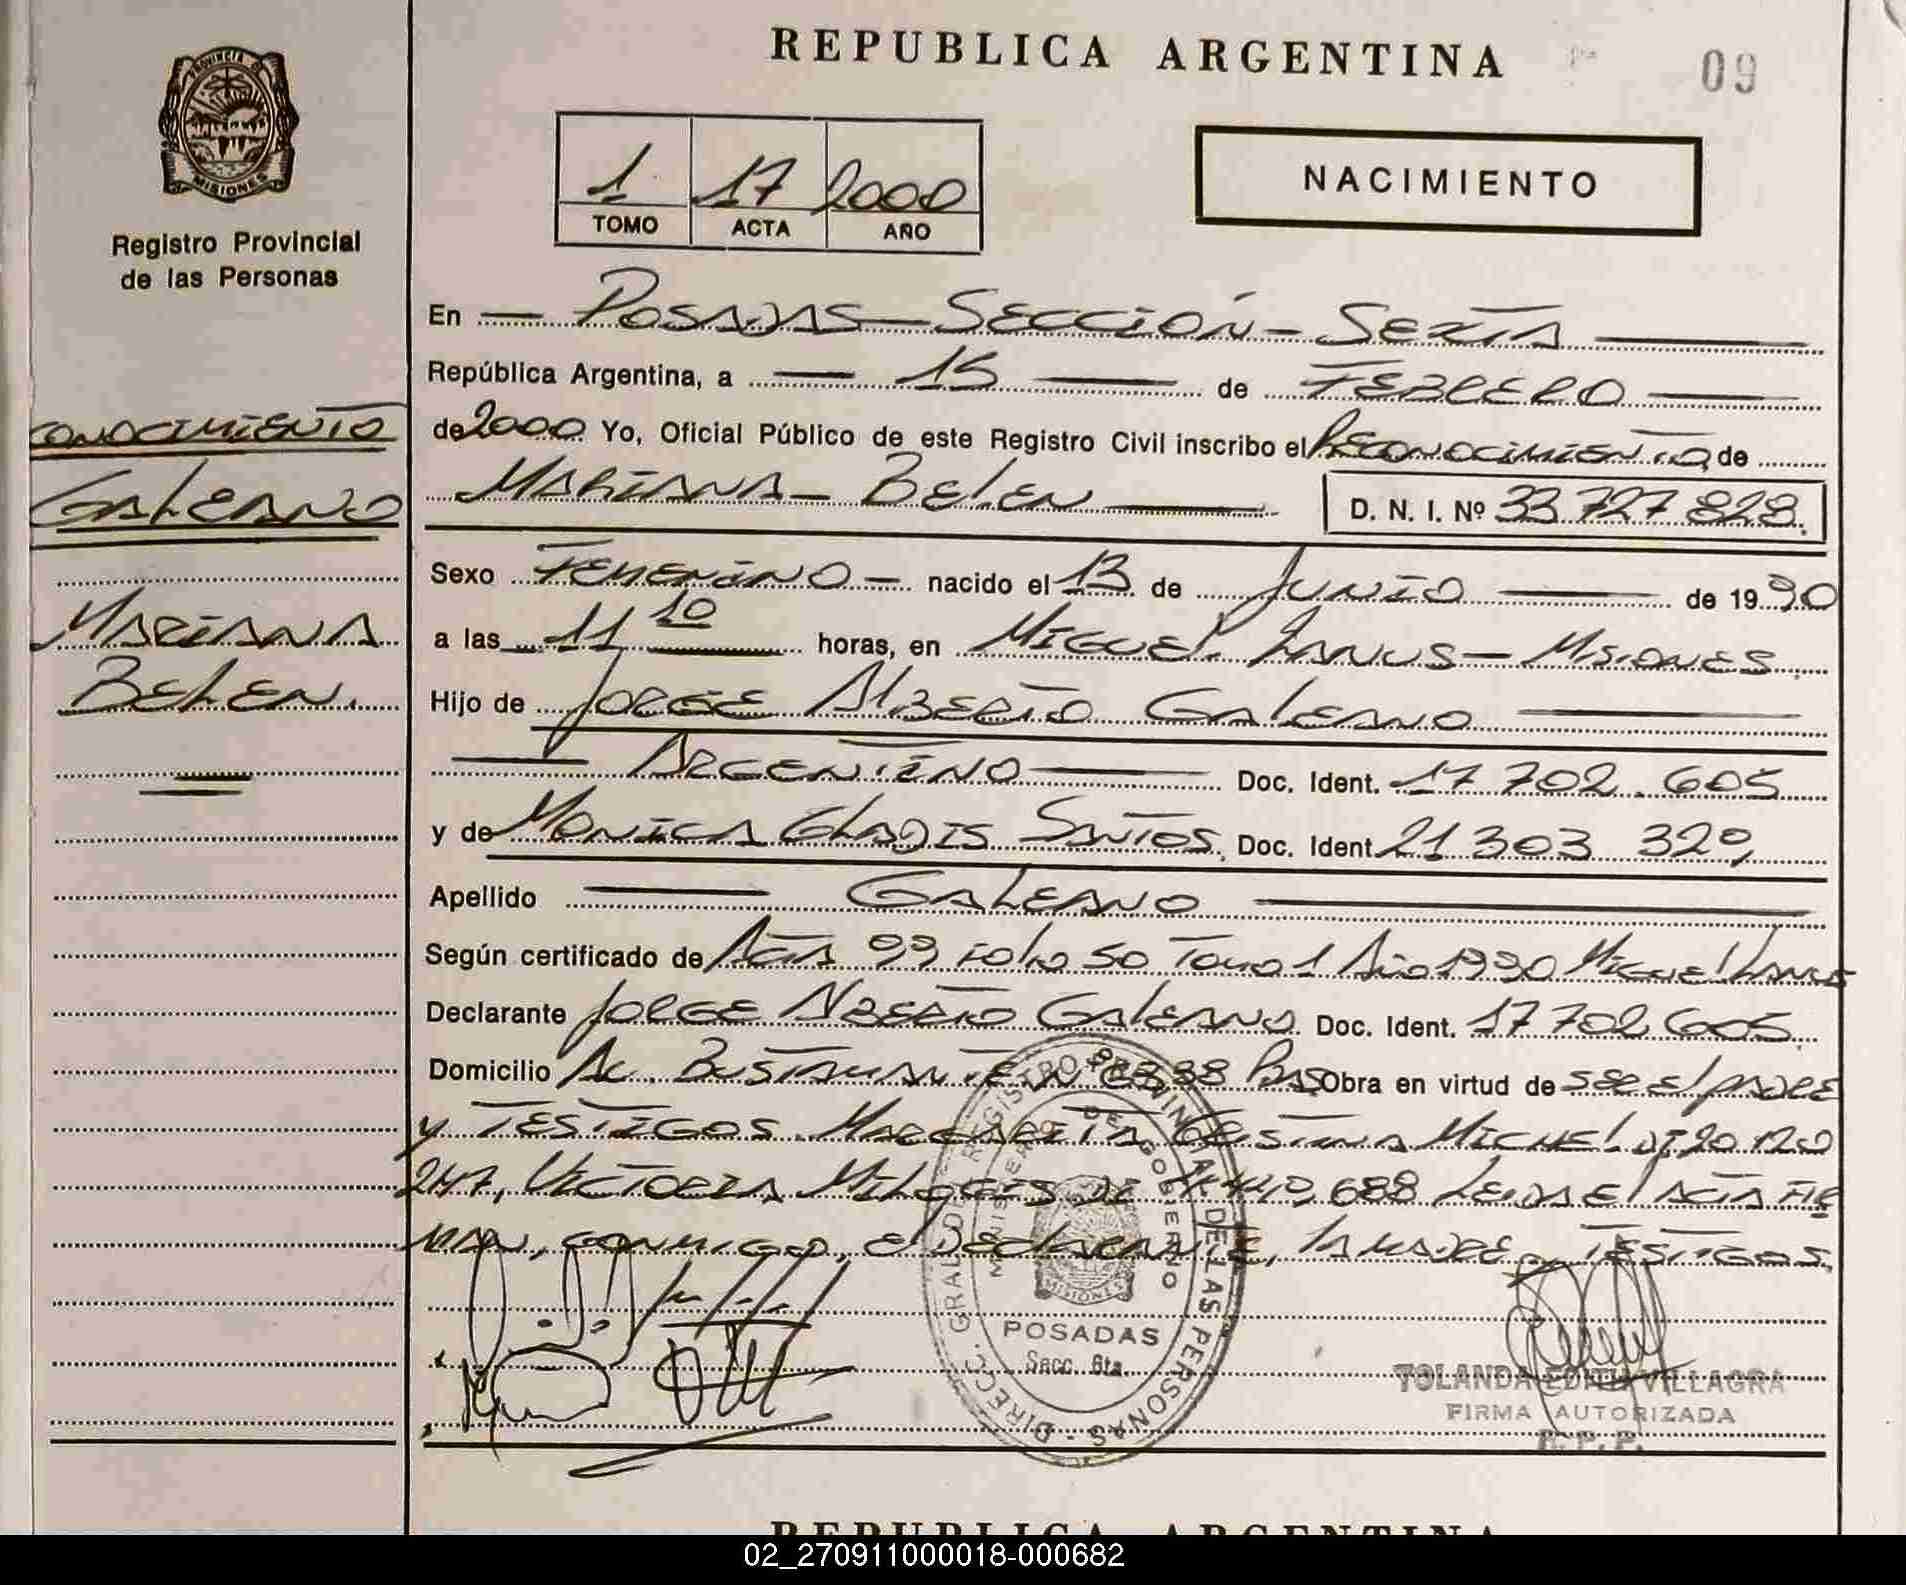 REPUBLICA ARGENTINA
09
PROVINCIA D MISIONES
Registro Provincial
de las Personas
1 17 2000
TOMO ACTA AÑO
NACIMIENTO
En POSADAS - SECCIÓN - SEXTA
República Argentina, a 15 de FEBRERO
de 2000 Yo, Oficial Público de este Registro Civil inscribo el RECONOCIMIENTO de
MARIANA - BELEN D. N. I. Nº 33.727.828.
CONOCIMIENTO
GALEANO
MARIANA
BELEN.
Sexo FEMENINO - nacido el 13 de JUNIO de 1990
a las 11 10 horas, en MIGUEL LANUS - MISIONES
Hijo de JORGE ALBERTO GALEANO
ARGENTINO Doc. Ident. 17 702.605
y de MONICA GLADIS SANTOS. Doc. Ident. 21 303 320,
Apellido GALEANO
Según certificado de ACTA 99 Folio 50 TOMO 1 AÑO 1990 MIGUEL LANUS
Declarante JORGE ALBERTO GALEANO. Doc. Ident. 17 702 605.
Domicilio AV. BUSTAMANTE Obra en virtud de SER EL PADRE
y TESTIGOS. MARGARITA CRISTINA MICHEL DI 20 120
247, VICTORIA 688 LEIDA EL ACTA FIR
MAN, CONMIGO, el DECLARANTE, LA MADRE y TESTIGOS.
DIRECC. GRAL. DE REGISTRO PROVINCIAL DE LAS PERSONAS
MINISTERIO DE GOBIERNO
MISIONES
POSADAS
Secc. 6ta.
YOLANDA EDITH VILLAGRA
FIRMA AUTORIZADA
R. P. P.
REPUBLICA ARGENTINA
02_270911000018-000682